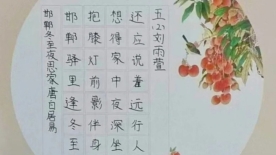 邯郸冬至夜思家唐白居易
邯郸驿里逢冬至
抱膝灯前影伴身
想得家中夜深坐
还应说着远行人
五(2)刘雨萱